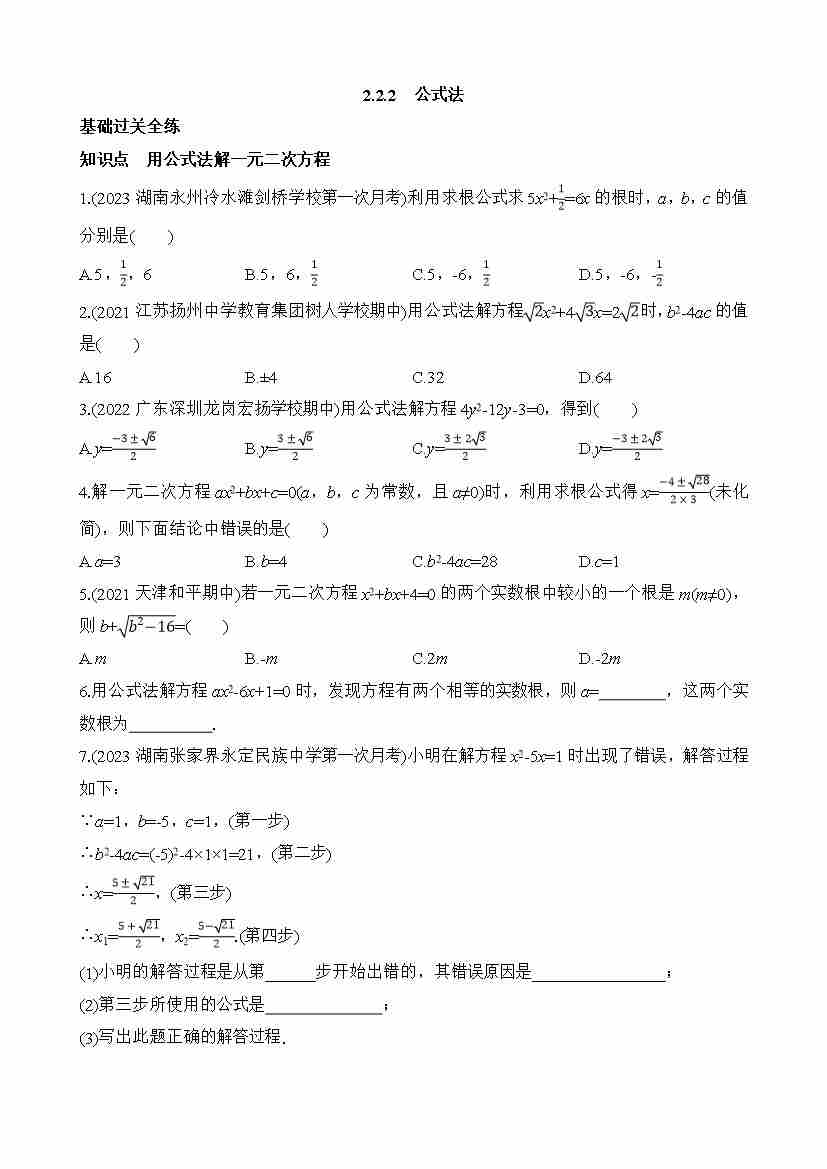 2.2.2 公式法
基础过关全练
知识点 用公式法解一元二次方程
1.(2023湖南永州冷水滩剑桥学校第一次月考)利用求根公式求5x²+1/2=6x的根时,a,b,c的值
分别是( )
A.5,1/2,6 B.5,6,1/2 C.5,-6,1/2 D.5,-6,-1/2
2.(2021江苏扬州中学教育集团树人学校期中)用公式法解方程√2x²+4√3x=2√2时,b²-4ac的值
是( )
A.16 B.±4 C.32 D.64
3.(2022广东深圳龙岗宏扬学校期中)用公式法解方程4y²-12y-3=0,得到( )
A.y=(-3±√6)/2 B.y=(3±√6)/2 C.y=(3±2√3)/2 D.y=(-3±2√3)/2
4.解一元二次方程ax²+bx+c=0(a,b,c为常数,且a≠0)时,利用求根公式得x=(-4±√28)/(2×3)(未化
简),则下面结论中错误的是( )
A.a=3 B.b=4 C.b²-4ac=28 D.c=1
5.(2021天津和平期中)若一元二次方程x²+bx+4=0的两个实数根中较小的一个根是m(m≠0),
则b+√(b²-16)=( )
A.m B.-m C.2m D.-2m
6.用公式法解方程ax²-6x+1=0时,发现方程有两个相等的实数根,则a=________,这两个实
数根为__________.
7.(2023湖南张家界永定民族中学第一次月考)小明在解方程x²-5x=1时出现了错误,解答过程
如下:
∵a=1,b=-5,c=1,(第一步)
∴b²-4ac=(-5)²-4×1×1=21,(第二步)
∴x=(5±√21)/2,(第三步)
∴x₁=(5+√21)/2,x₂=(5-√21)/2.(第四步)
(1)小明的解答过程是从第______步开始出错的,其错误原因是________________;
(2)第三步所使用的公式是______________;
(3)写出此题正确的解答过程.